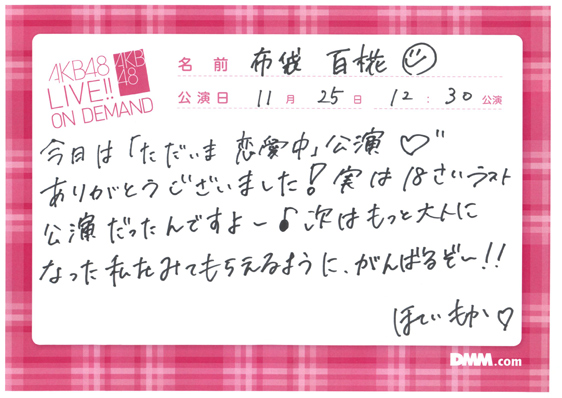 AKB48
LIVE!!
ON DEMAND
AKB
48
名前 布袋 百椛
公演日 11月25日 12:30公演
今日は「ただいま 恋愛中」公演♡"
ありがとうございました！実は18さいラスト
公演だったんですよー♪次はもっと大人に
なった私をみてもらえるように、がんばるぞー!!
ほてい もか♡
DMM.com